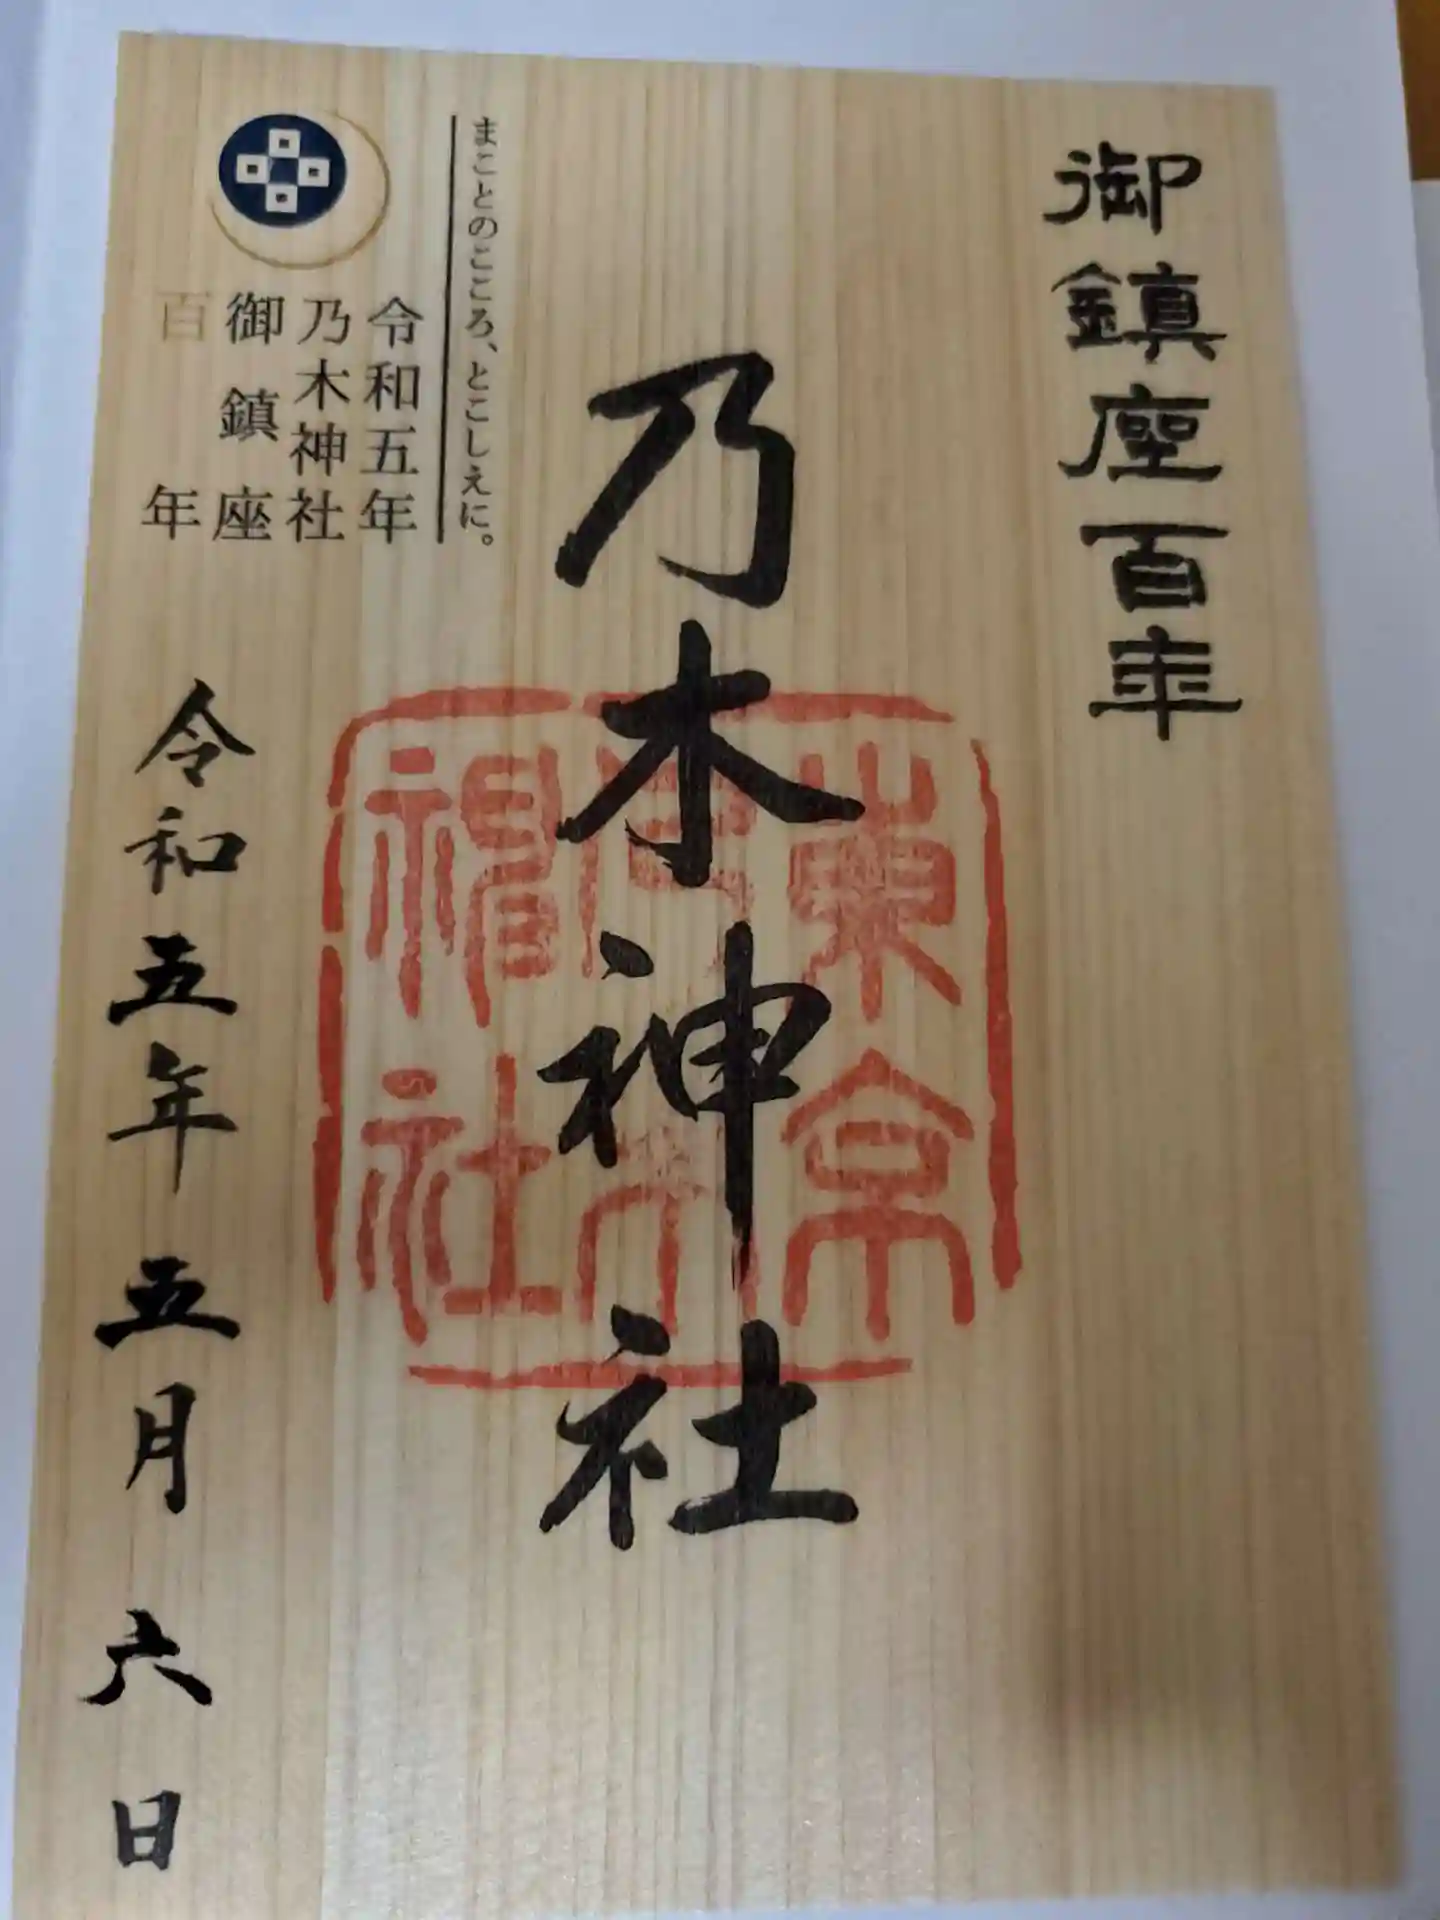 御鎮座百年
乃木神社
東京
乃木
神社
まことのこころ、とこしえに。
令和五年
乃木神社
御鎮座
百年
令和五年五月六日